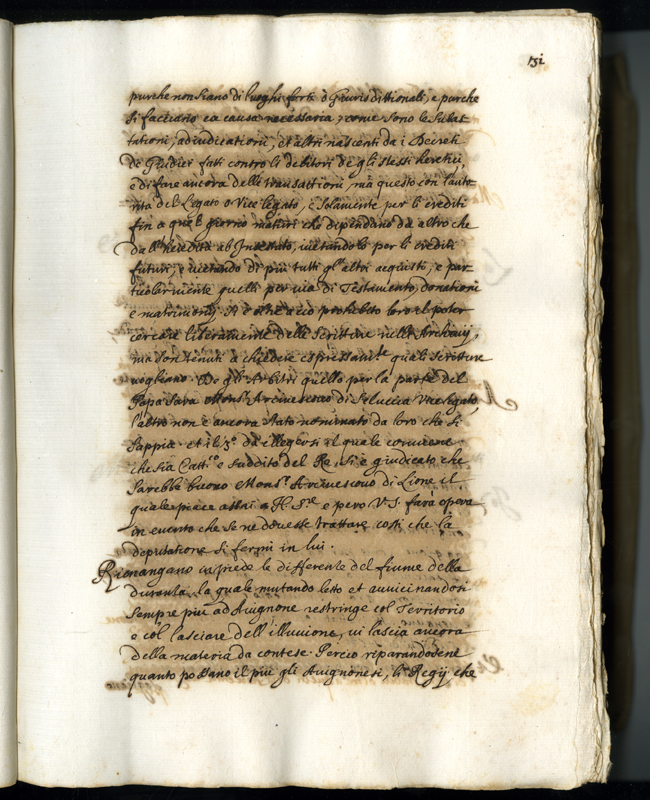 151
purche non siano di luoghi forti ò Giurisdittionali, e purche
si facciano ex causa necessaria, come sono le Subas
tationi, adiudicationi, et altri nascenti da i Decreti
de Giudici fatti contro li debitori de gli stessi heretici,
e di fare ancora delle transactioni, ma questo con l'auto
rità del Legato o Vice legato, e solamente per li crediti
fin a quel giorno maturi che dipendano da altro che
dall'heredità ab Intestato, vietandoli per li crediti
futuri, e vietando di più tutti gl'altri acquisti, e par
ticolarmente quelli per via di Testamento, donationi
e matrimonij. Si è oltre a ciò prohibito loro el poter
cercare liberamente delle scritture nelli Archivij,
ma son tenuti a chiedere espressam.te quali scritture
vogliano. De gli Arbitri quello per la parte del
Papa sarà Mons.r Arcivescovo di Seleucia Vicelegato,
l'altro non è ancora stato nominato da loro che si
sappia. et il 3.º da elegersi il quale conviene
che sia Catt.co e suddito del Re, si è giudicato che
sarebbe buono Mons.r Arcivescovo di Lione il
quale piace assai a N. S.re e però V. S. farà opera
in evento che se ne dovesse trattare costì che la
deputatione si fermi in lui.
Rimangano in piede le differenze del fiume della
duranza, la quale mutando letto et avvicinandosi
sempre più ad Avignone restringe col Territorio
e col lasciare dell'illuvione, vi lascia ancora
della materia da contese. Perciò riparandosene
quanto possano il più gli Avignonesi, li Regij, che